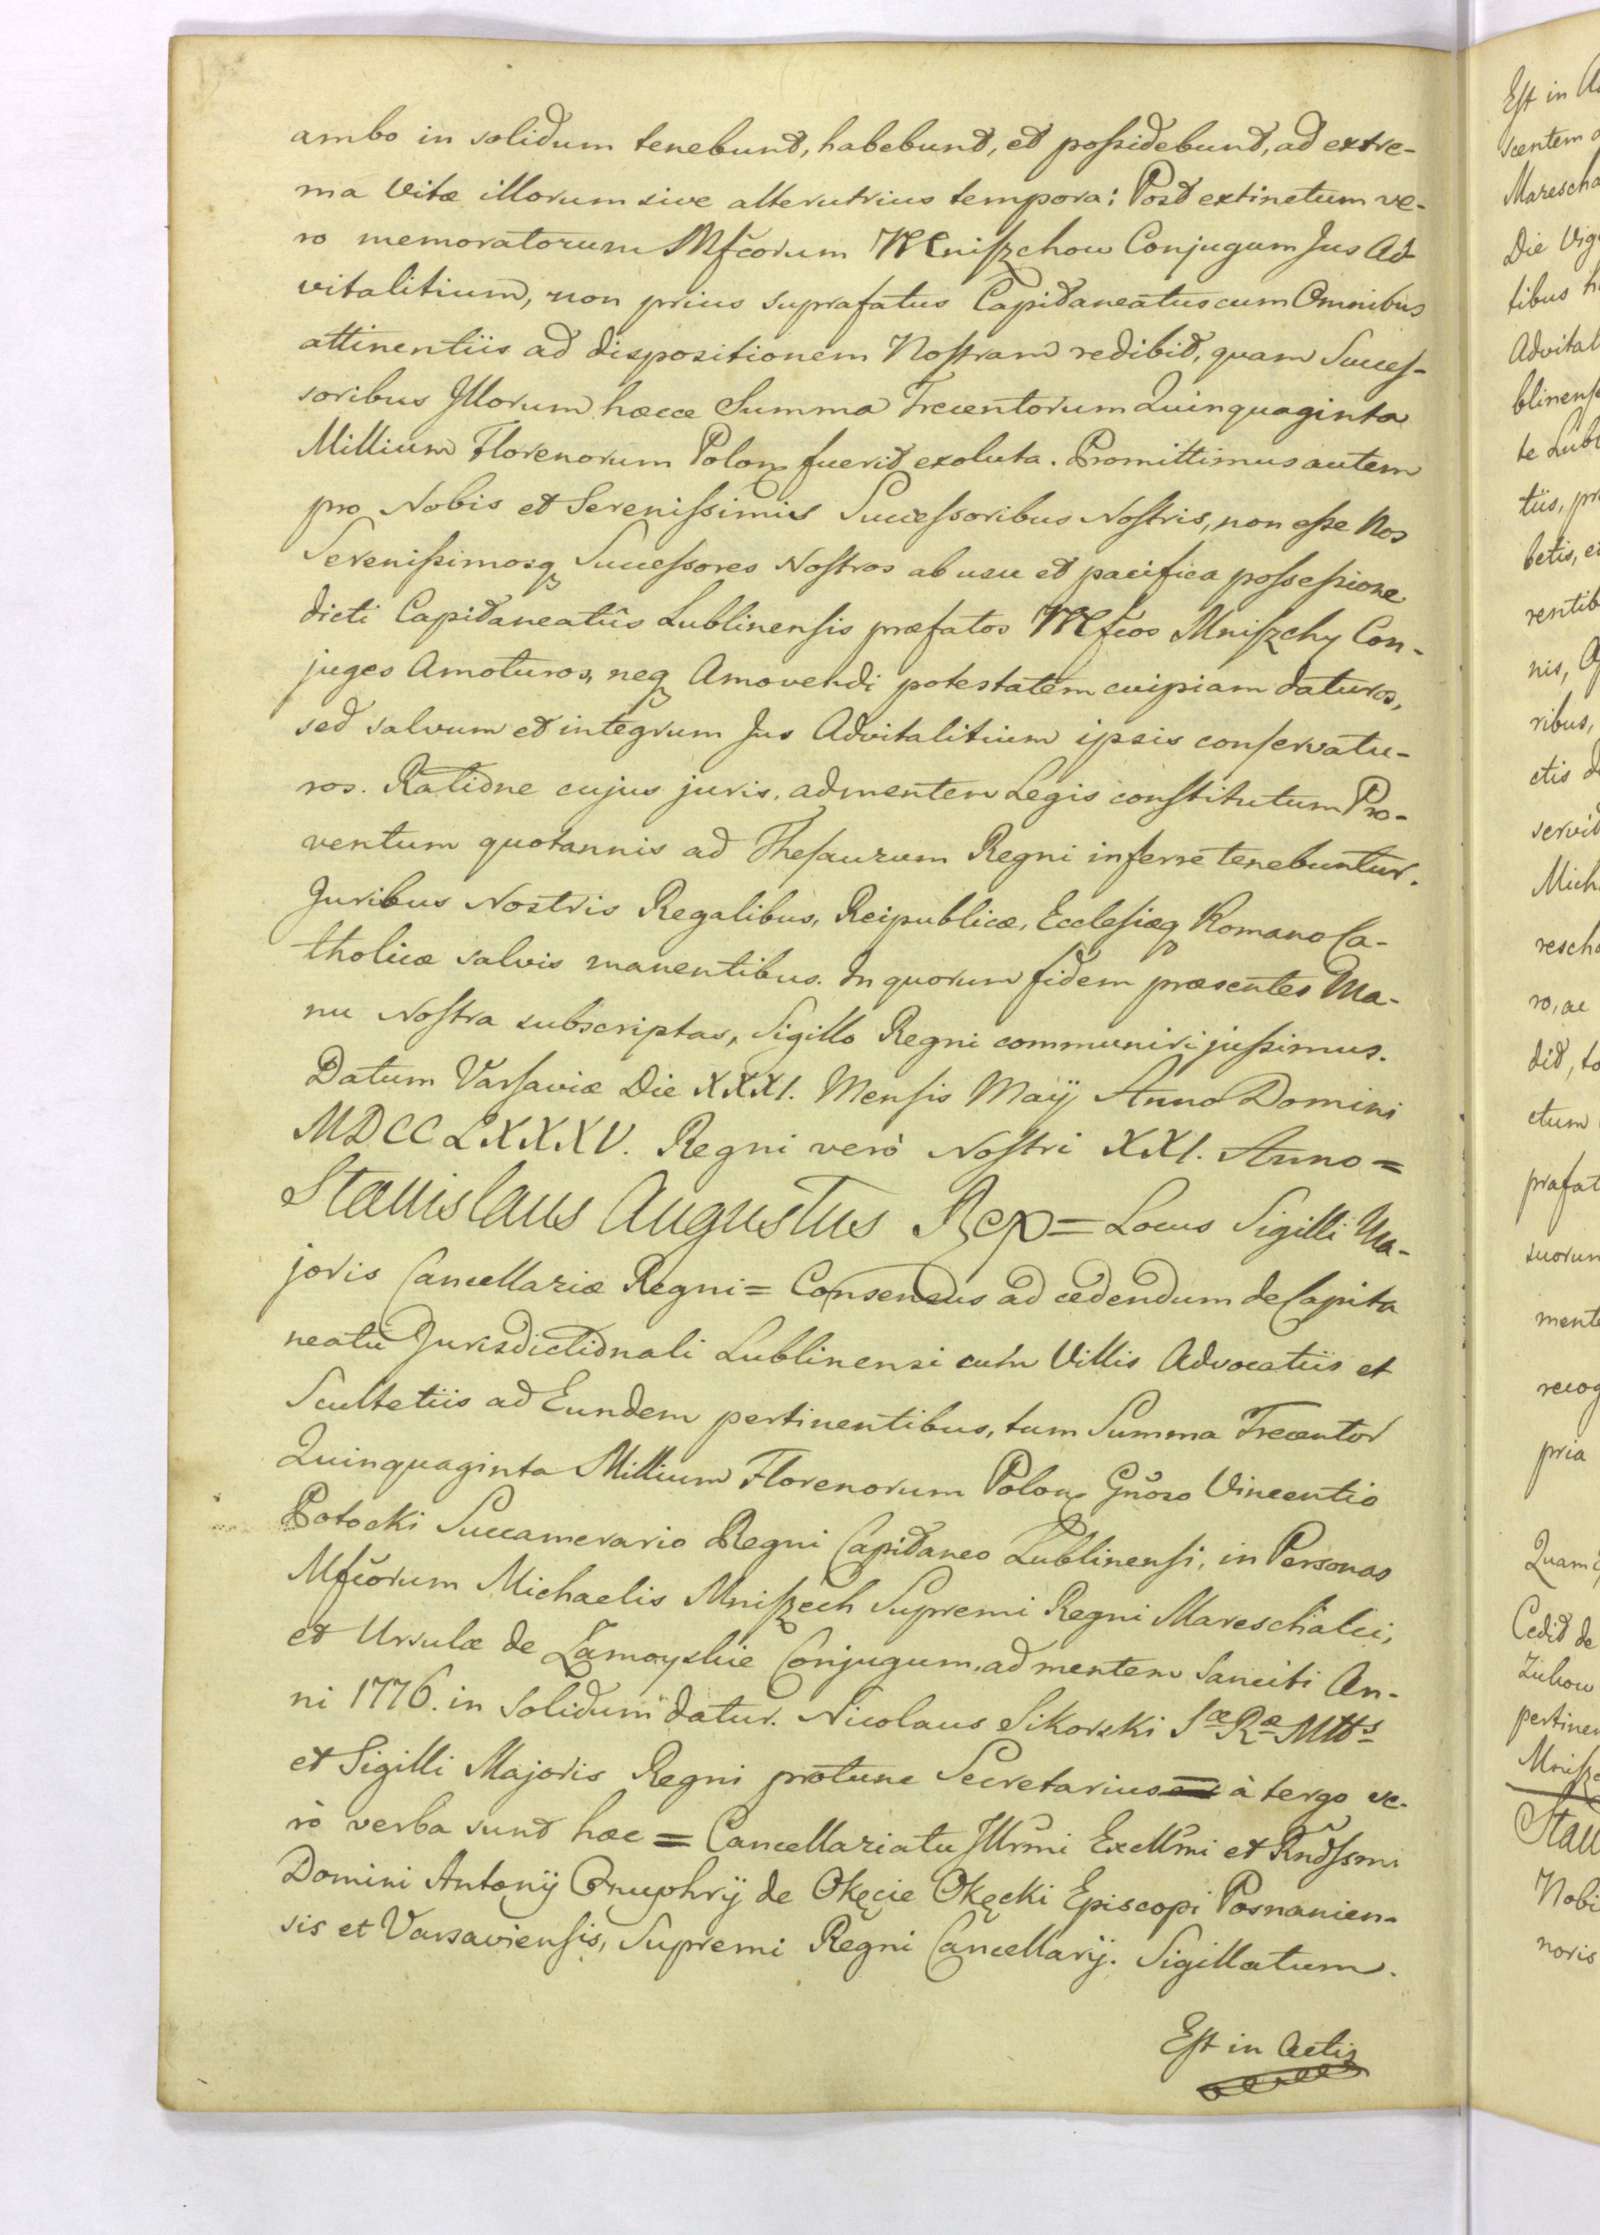 ambo in solidum tenebunt, habebunt, et poſsidebunt, ad extre-
ma Vitæ illorum sive alterutrius tempora: Post extinctum ve-
ro memoratorum Mfcorum Mniſzchow Conjugum Jus Ad-
vitalitium, non prius suprafatus Capitaneatus cum Omnibus
attinentiis ad dispositionem Noſtram redibit, quam Succeſ-
soribus Illorum hæcce Summa Trecentorum Quinquaginta
Millium Florenorum Polon fuerit exoluta. Promittimus autem
pro Nobis et Sereniſsimis Succeſsoribus Noſtris, non eſse Nos
Sereniſsimosq Succeſsores Noſtros ab usu et pacifica poſseſsione
dicti Capitaneatûs Lublinenſis præfatos Mfcos Mniſzchy Con-
juges Amoturos, neq Amovendi potestatem cuipiam daturos,
sed salvum et integrum Jus Advitalitium ipsis conſervatu-
ros. Ratione cujus juris, ad mentem Legis conſtitutum Pro-
ventum quotannis ad Theſaurum Regni inferre tenebuntur.
Juribus Nostris Regalibus, Reipublicæ, Eccleſiæq Romano Ca-
tholicæ salvis manentibus. In quorum fidem præsentes Ma-
nu Noſtra subscriptas, Sigillo Regni communiri juſsimus.
Datum Varſaviæ Die XXXI. Menſis Maij Anno Domini
MDCCLXXXV. Regni verò Noſtri XXI. Anno =
Stanislaus Augustus Rex = Locus Sigilli Ma-
joris Cancellariæ Regni = Consensus ad cedendum de Capita
neatu Jurisdictionali Lublinensi cum Villis Advocatiis et
Scultetiis ad Eundem pertinentibus, tum Summa Trecentor
Quinquaginta Millium Florenorum Polon Gñoso Vincentio
Potocki Succamerario Regni Capitaneo Lublinenſi, in Personas
Mfcorum Michaelis Mniſzech Supremi Regni Mareschalci,
et Ursulæ de Zamoyskie Conjugum, ad mentem Sanciti An-
ni 1776. in Solidum datur. Nicolaus Sikorski Sæ Ræ Mttis
et Sigilli Majoris Regni protunc Secretarius = à tergo ve-
rò verba sunt hæc = Cancellariatu Illrmi Excellmi et Rndſsmi
Domini Antonij Onuphrij de Okęcie Okęcki Episcopi Posnanien-
sis et Varsavienſis, Supremi Regni Cancellarij. Sigillatum.
Eſt in Actis